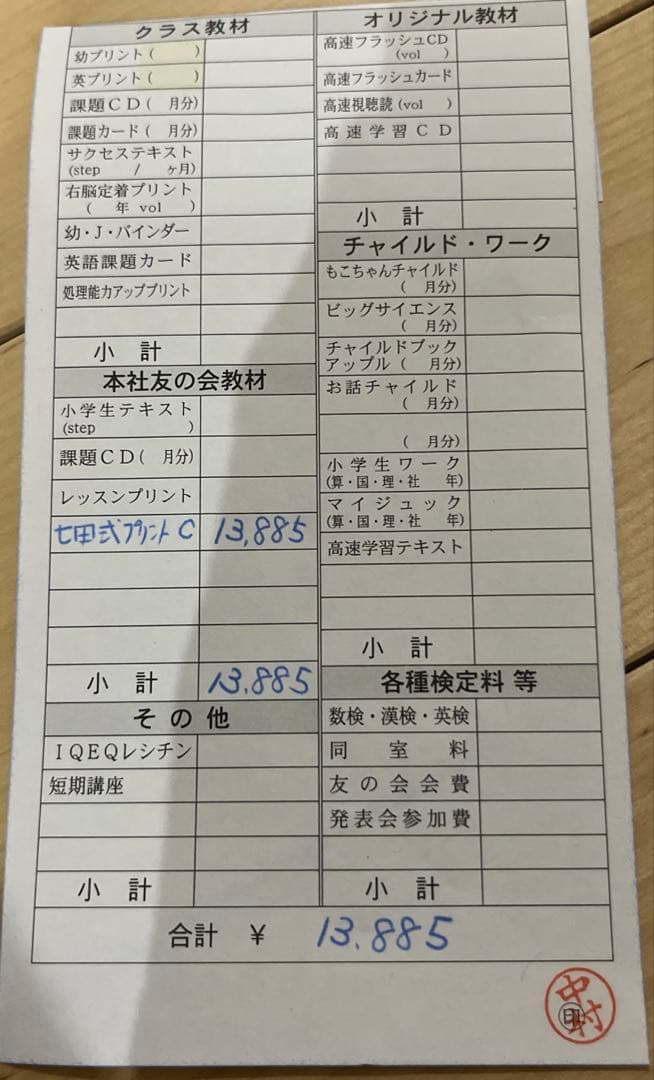 クラス教材
幼プリント（　　）
英プリント（　　）
課題ＣＤ（　月分）
課題カード（　月分）
サクセステキスト
(step　　/　　ヶ月)
右脳定着プリント
（　年 vol　　）
幼・Ｊ・バインダー
英語課題カード
処理能力アッププリント
小　計
本社友の会教材
小学生テキスト
(step　　　　)
課題ＣＤ（　月分）
レッスンプリント
七田式プリントＣ　13,885
小　計　13.885
その他
ＩＱＥＱレシチン
短期講座
小　計
オリジナル教材
高速フラッシュCD
(vol　　)
高速フラッシュカード
高速視聴読（vol　　）
高速学習ＣＤ
小　計
チャイルド・ワーク
もこちゃんチャイルド
（　月分）
ビッグサイエンス
（　月分）
チャイルドブック
アップル（　月分）
お話チャイルド
（　月分）
（　月分）
小学生ワーク
(算・国・理・社　　年)
マイジュック
(算・国・理・社　　年)
高速学習テキスト
小　計
各種検定料 等
数検・漢検・英検
同　室　料
友の会会費
発表会参加費
小　計
合計　￥　13.885
中村
印